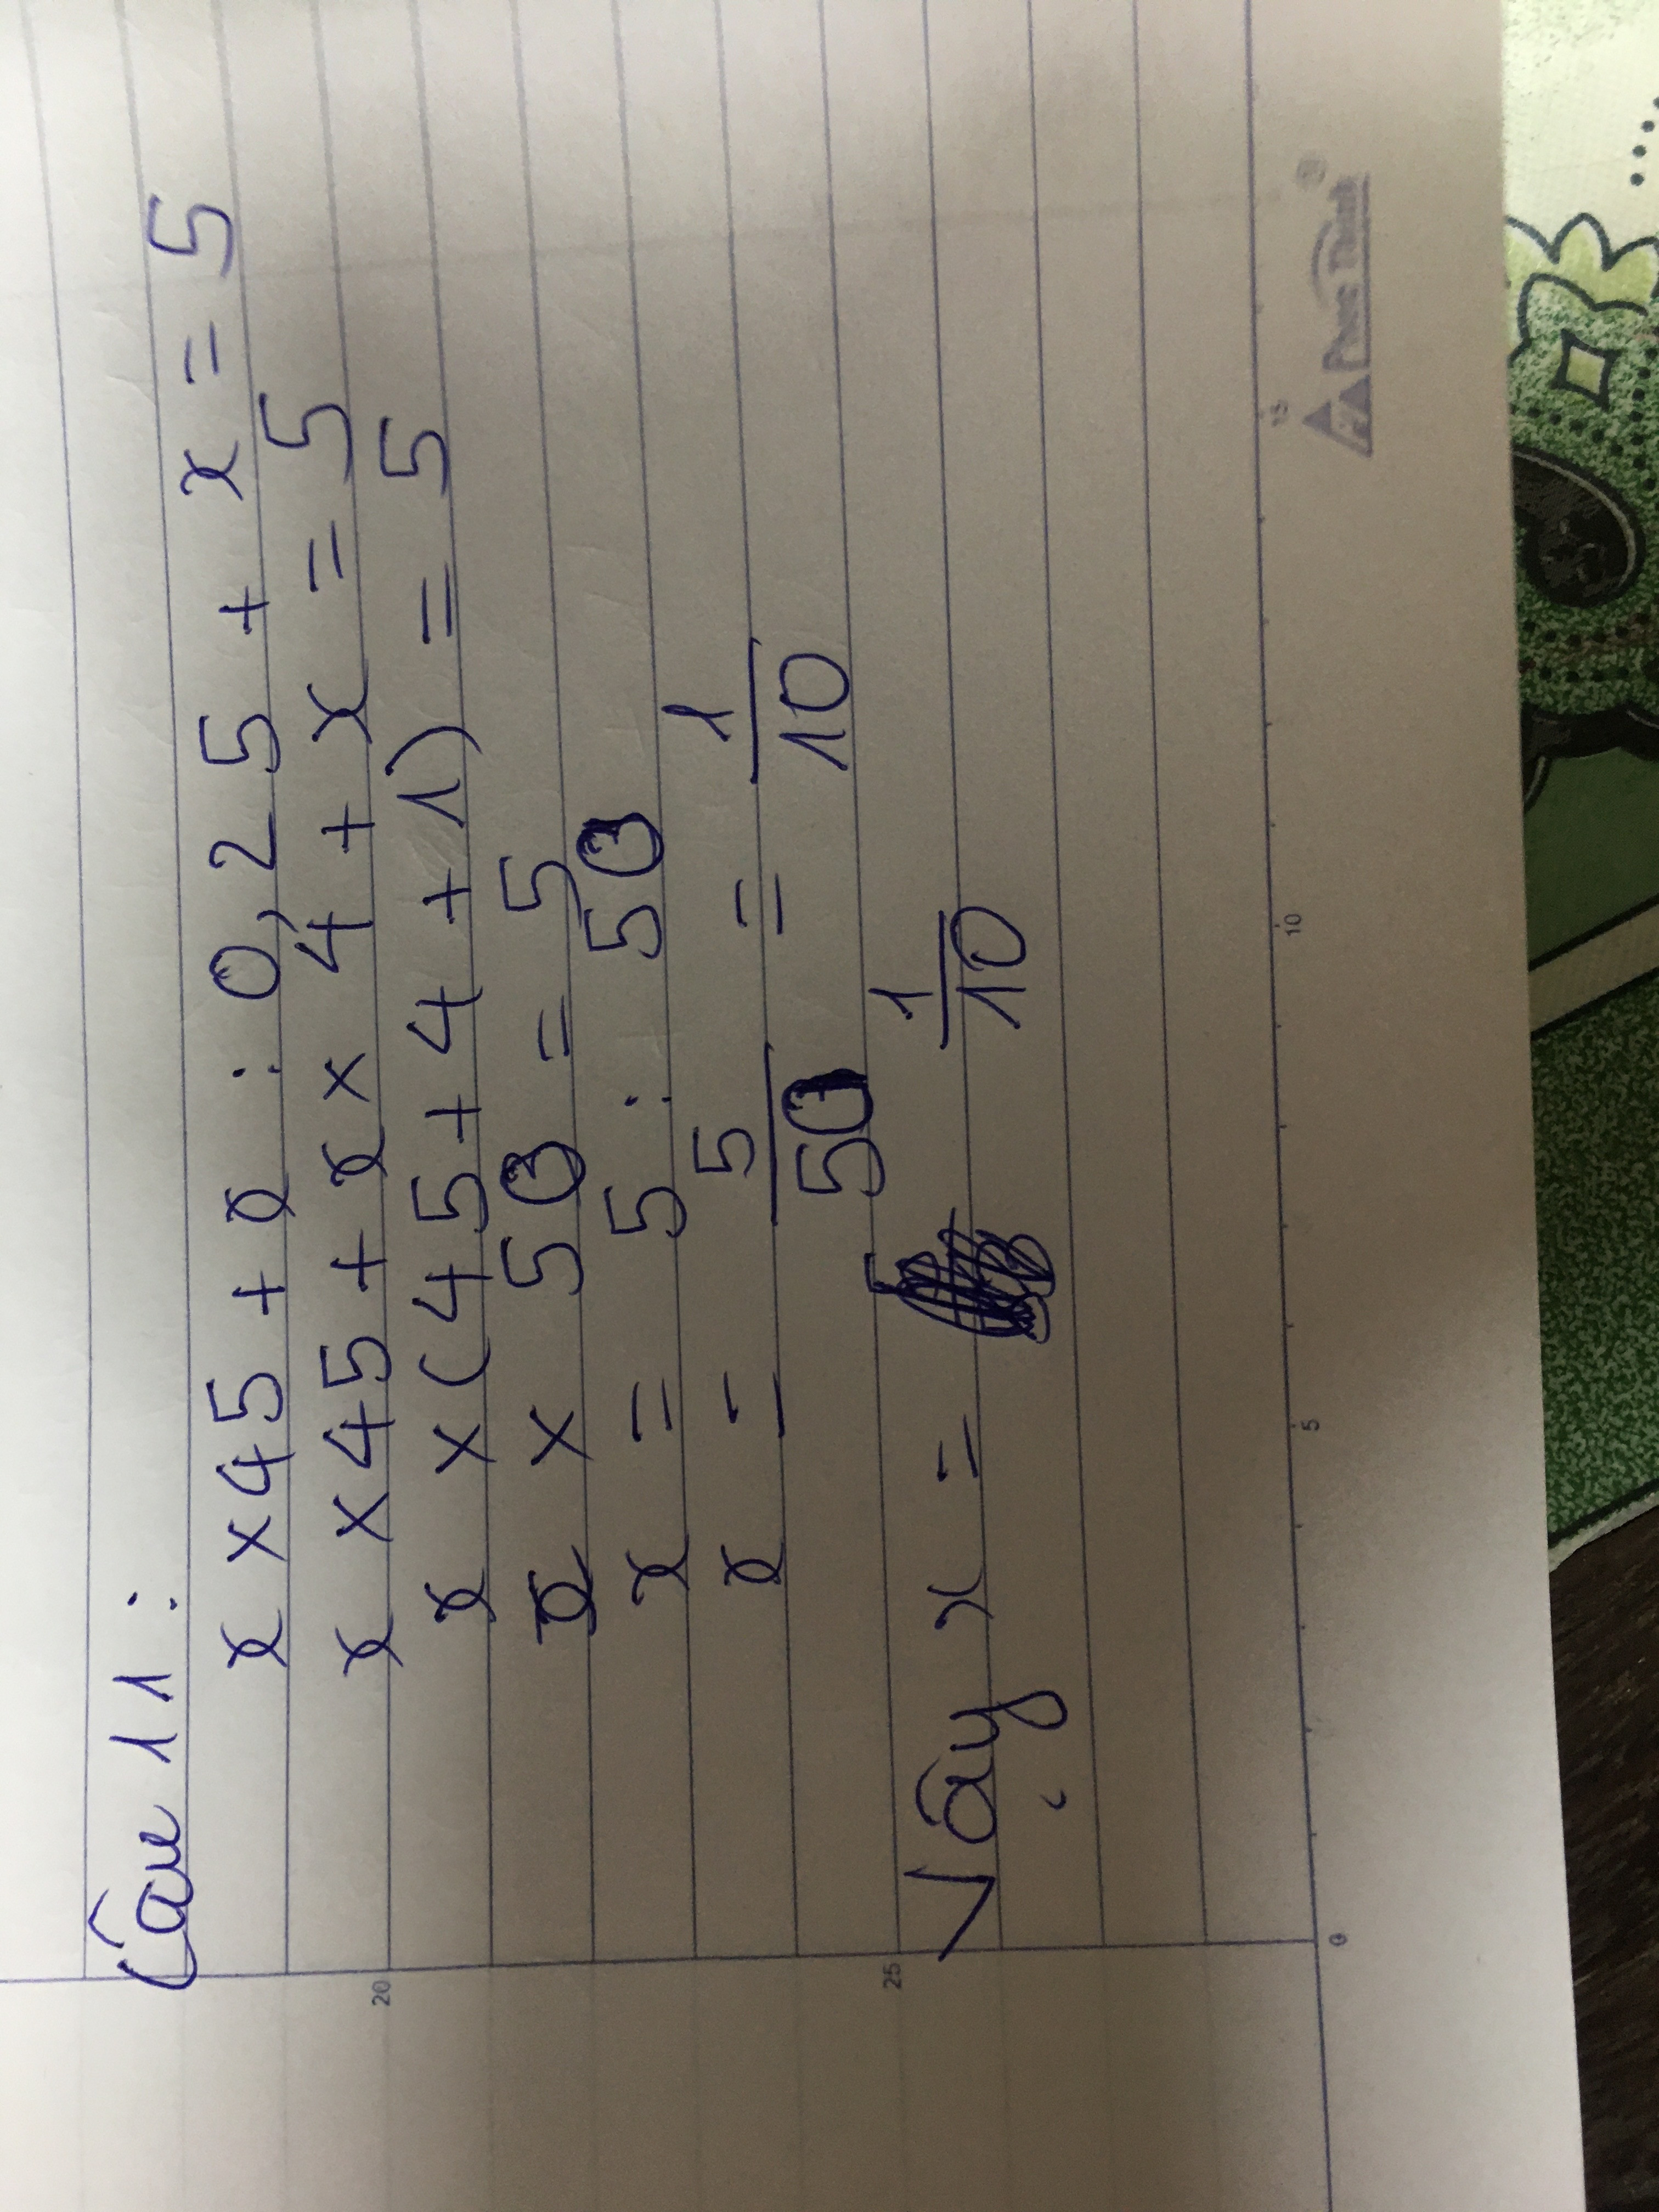 Câu 11:
x × 45 + x : 0,25 + x = 5
x × 45 + x × 4 + x = 5
x × (45 + 4 + 1) = 5
x × 50 = 5
x = 5 : 50
x = 5/50 = 1/10
Vậy x = 1/10
20
25
0 5 10 15
Phong Thinh ®